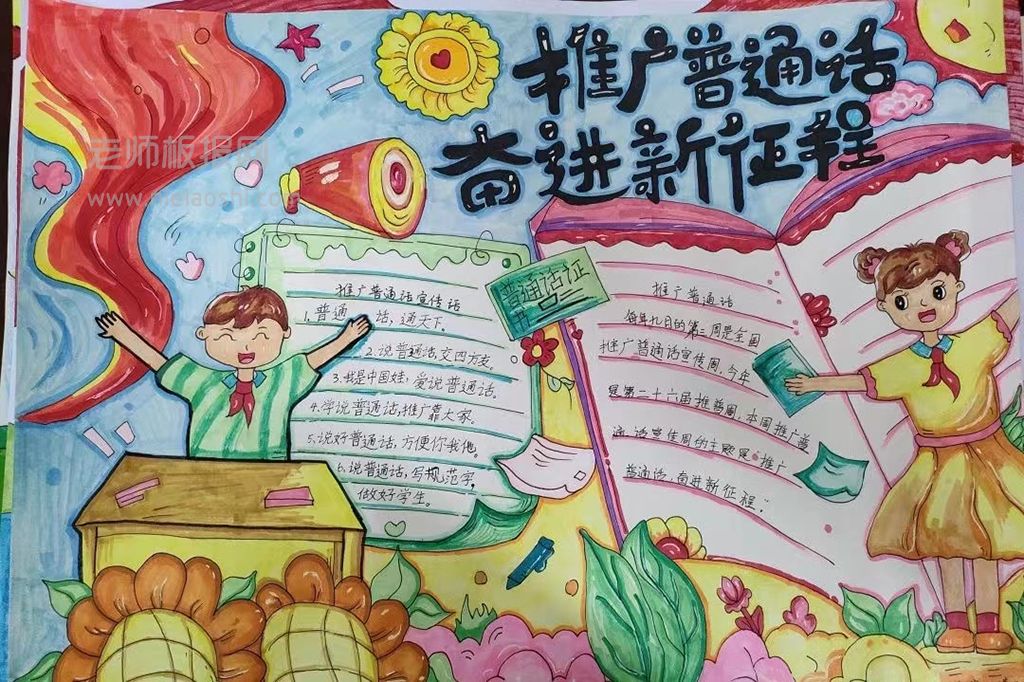 推广普通话
奋进新征程
老师板报网
推广普通话宣传语
1.普通话,通天下。
2.说普通话交四方友。
3.我是中国娃,爱说普通话。
4.学说普通话,推广靠大家。
5.说好普通话,方便你我他。
6.说普通话,写规范字,
做好学生。
普通话证
推广普通话
每年九月的第三周是全国
推广普通话宣传周,今年
是第二十六届推普周,本周推广普
通话宣传周的主题是:推广
普通话,奋进新征程"。